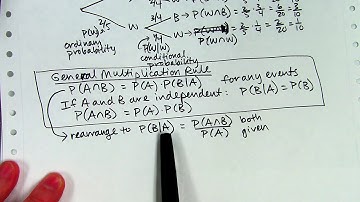 P(W) = 2/5
ordinary probability
W
3/4
B → P(W∩B) = 2/5 · 3/4 =
W →
P(W∩W)
= 2/5 · 1/4 = 2/20 = 1/10
P(W|W)
conditional probability
General Multiplication Rule
P(A∩B) = P(A)·P(B|A) for any events
If A and B are independent: P(B|A) = P(B)
P(A∩B) = P(A)·P(B)
→ rearrange to P(B|A) = P(A∩B) / P(A) both given